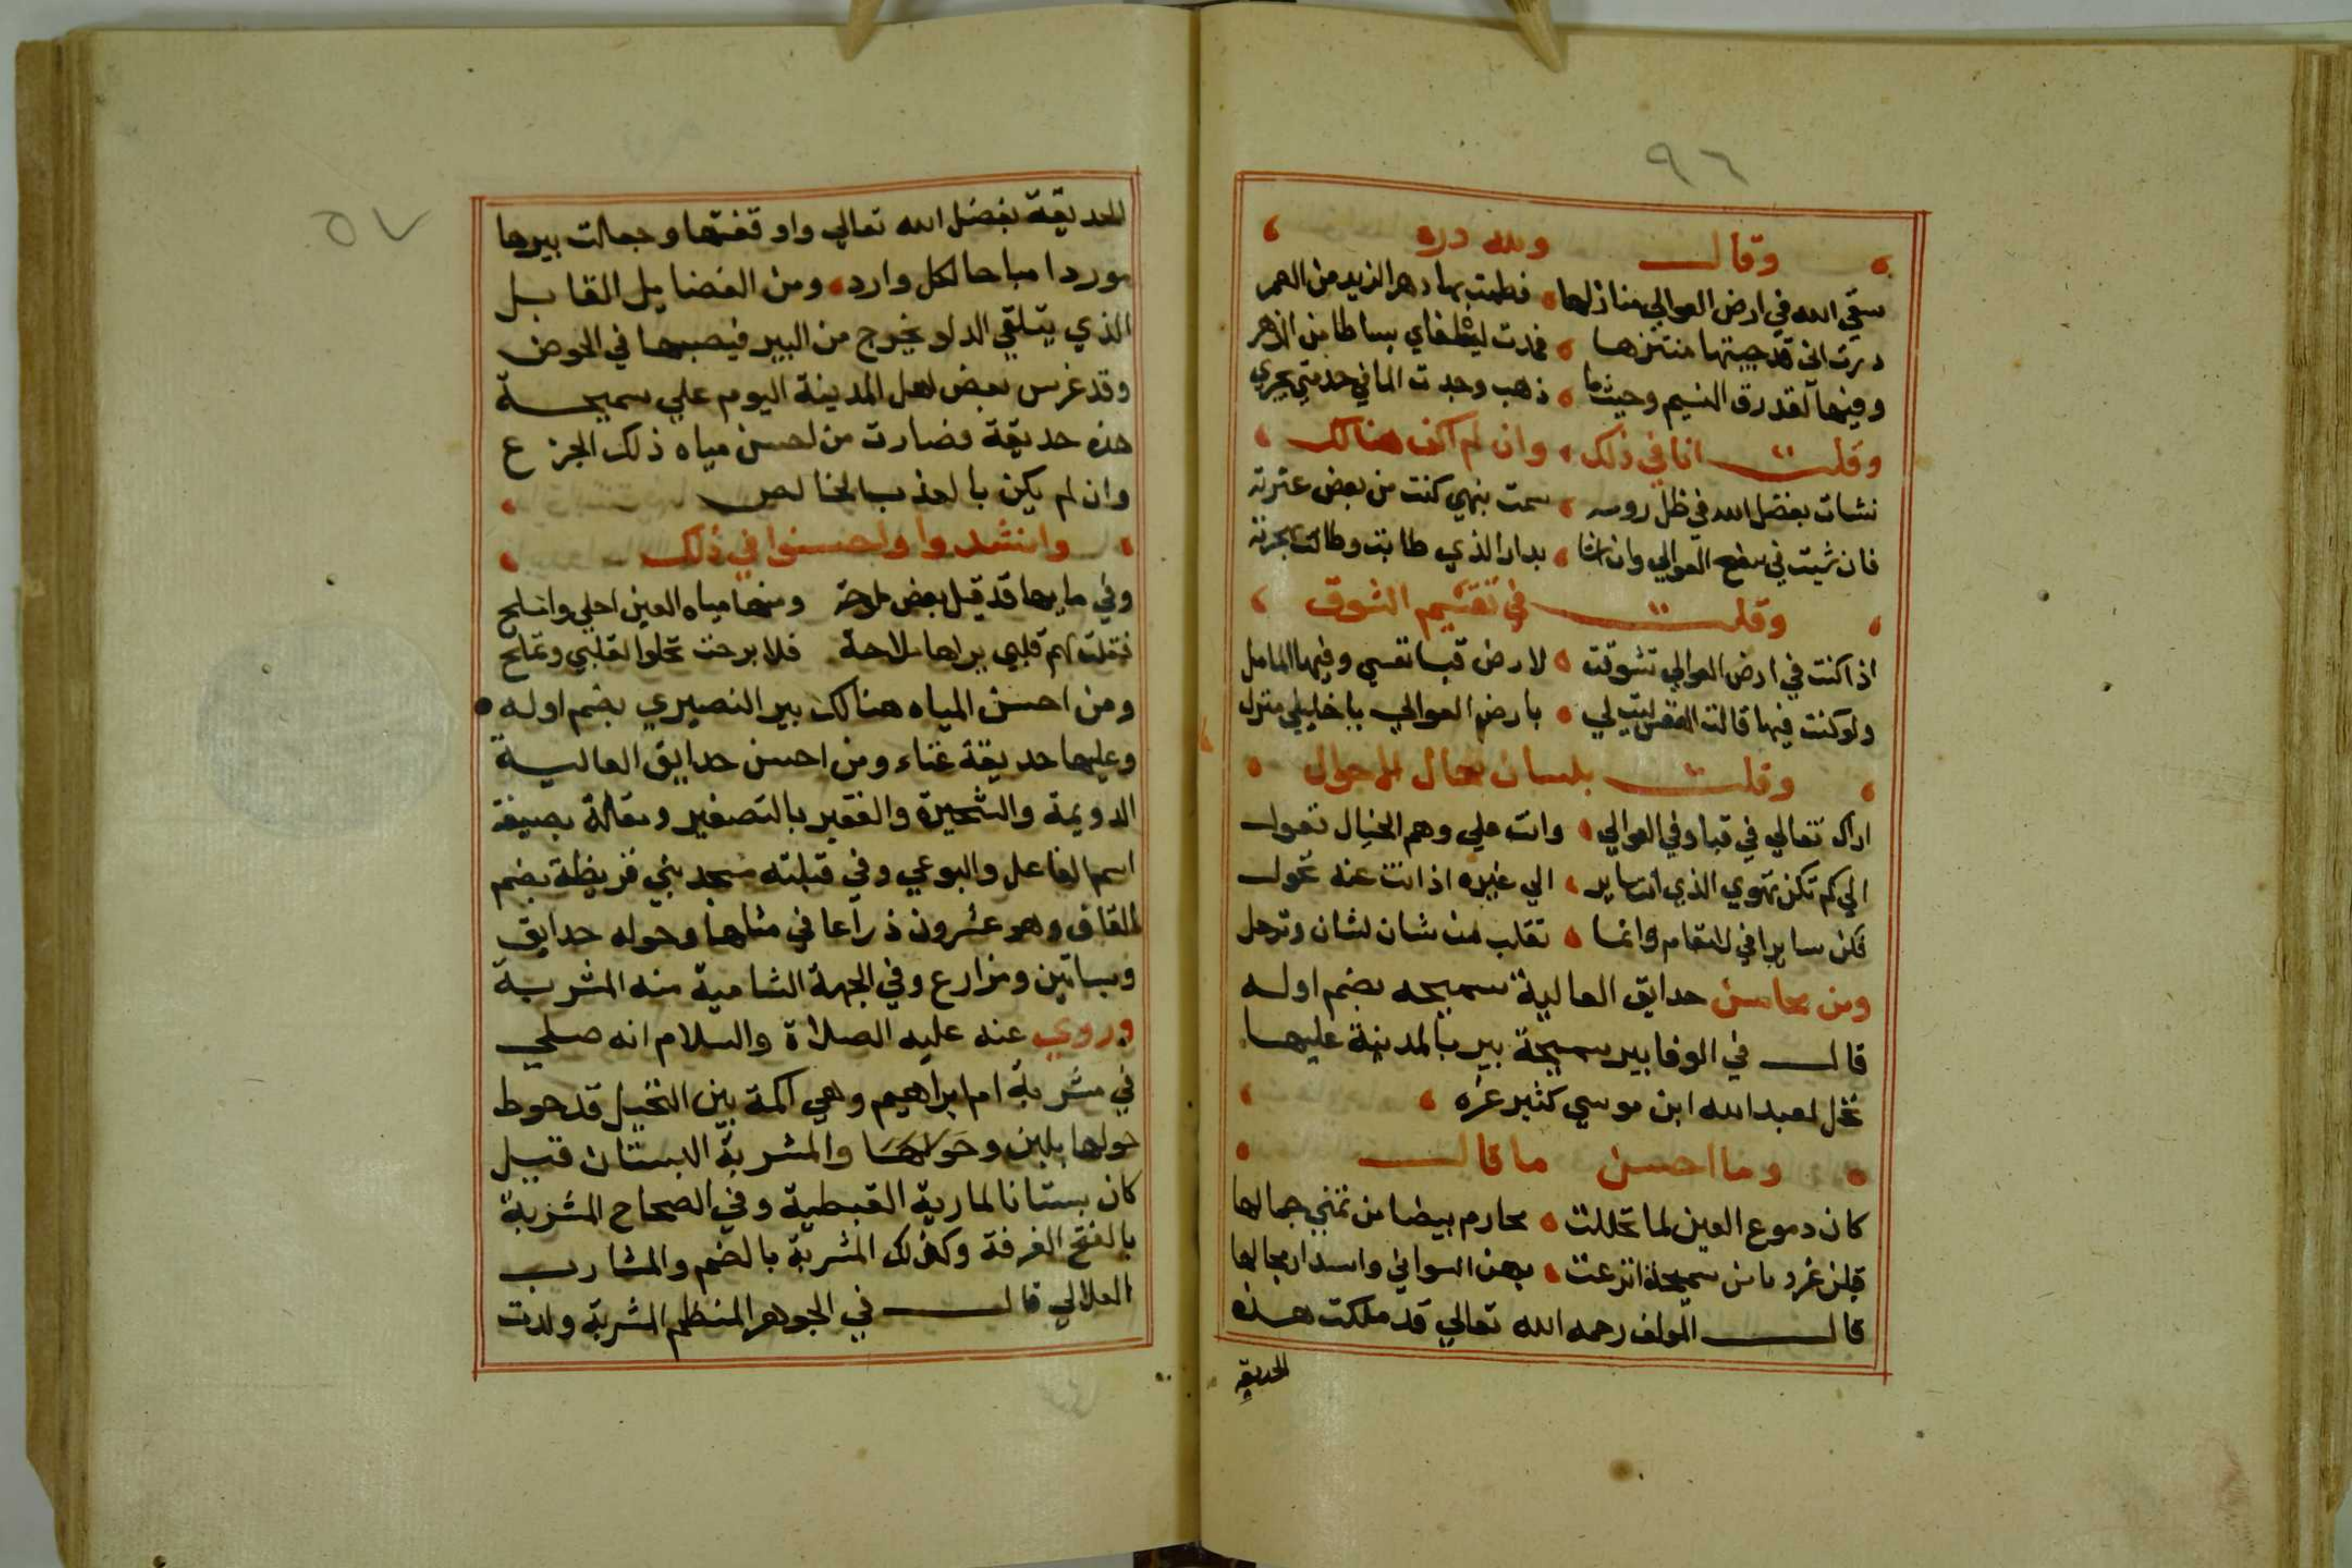 ٩٦
وقال ولله دره
سقي الله في ارض العوالي منازلها فطمت بها دهرا لذيد من العمر
درت اني قد جيتها منتزها فمدت لي بساطا من الزهر
وفيها لقد رق النسيم وحيثما ذهب وجدت الما في خدمتي يجري
وقلت انا في ذلك وان لم اكف هنالك
نشات بفضل الله في ظل رومه سمت بنبي كنت من بعض عترته
فان شيت في سفح العوالي وان تشا بدار الذي طابت وطالت بجرته
وقلت في تقسيم الشوق
اذا كنت في ارض العوالي تشوقت لارض قبا نفسي وفيها المامل
ولو كنت فيها قالت النفس ليت لي بارض العوالي يا خليلي منزل
وقلت بلسان حال الاحوال
اراك تغالي في قبا وفي العوالي وانت علي وهم الخيال تعول
الي كم تكن تهوي الذي انت ساير الي غيره اذ انت عنه تحول
فكن سايرا في لانقام وانما تقلب من شان لشان وترحل
ومن محاسن حدايق العالية سميحه بضم اوله
قال في الوفا بير سميحة بير بالمدينة عليها
نخل لعبد الله ابن موسي كثير غزه
وما احسن ما قال
كان دموع العين لما تحللت محارم بيضا من تمني جمالها
قبلن غروبا من سميحة انزعت بهن السواني واستدار مجالها
قال المولف رحمه الله تعالي قد ملكت هذه
الحديقة
٥٧
الحديقة بفضل الله تعالي واوقفتها وجعلت بيرها
موردا مباحا لكل وارد ومن الفضايل القابل
الذي يتلقي الدلو يخرج من البير فيصبها في الحوض
وقد غرس بعض اهل المدينة اليوم علي سميحة
هذه حديقة فصارت من احسن مياه ذلك الجزع
وان لم يكن بالعذب الخالص
وانشدوا واحسنوا في ذلك
وفي مايها قد قيل بعض ملوحة ومنها مياه العين احلي واملح
فقلت لهم قلبي يراها ملاحة فلا برحت تحلوا لقلبي وتملح
ومن احسن المياه هنالك بير النصيري بضم اوله
وعليها حديقة غناء ومن احسن حدايق العالية
الدويمة والشجيرة والفقير بالتصغير ونقالة بصيغة
اسم الفاعل والبوعي وفي قبلته مسجد بني قريظة بضم
القاف وهو عشرون ذراعا في مثلها وحوله حدايق
وبساتين ومزارع وفي الجهة الشامية منه المشربة
وروي عنه عليه الصلاة والسلام انه صلي
في مشربة ام ابراهيم وهي اكمة بين النخيل قد حوط
حولها بلبن وحولها والمشربة البستان قيل
كان بستانا لمارية القبطية وفي الصحاح المشربة
بالفتح الغرفة وكذلك المشربة بالضم والمشارب
العلالي قال في الجوهر المنظم المشربة ولدت